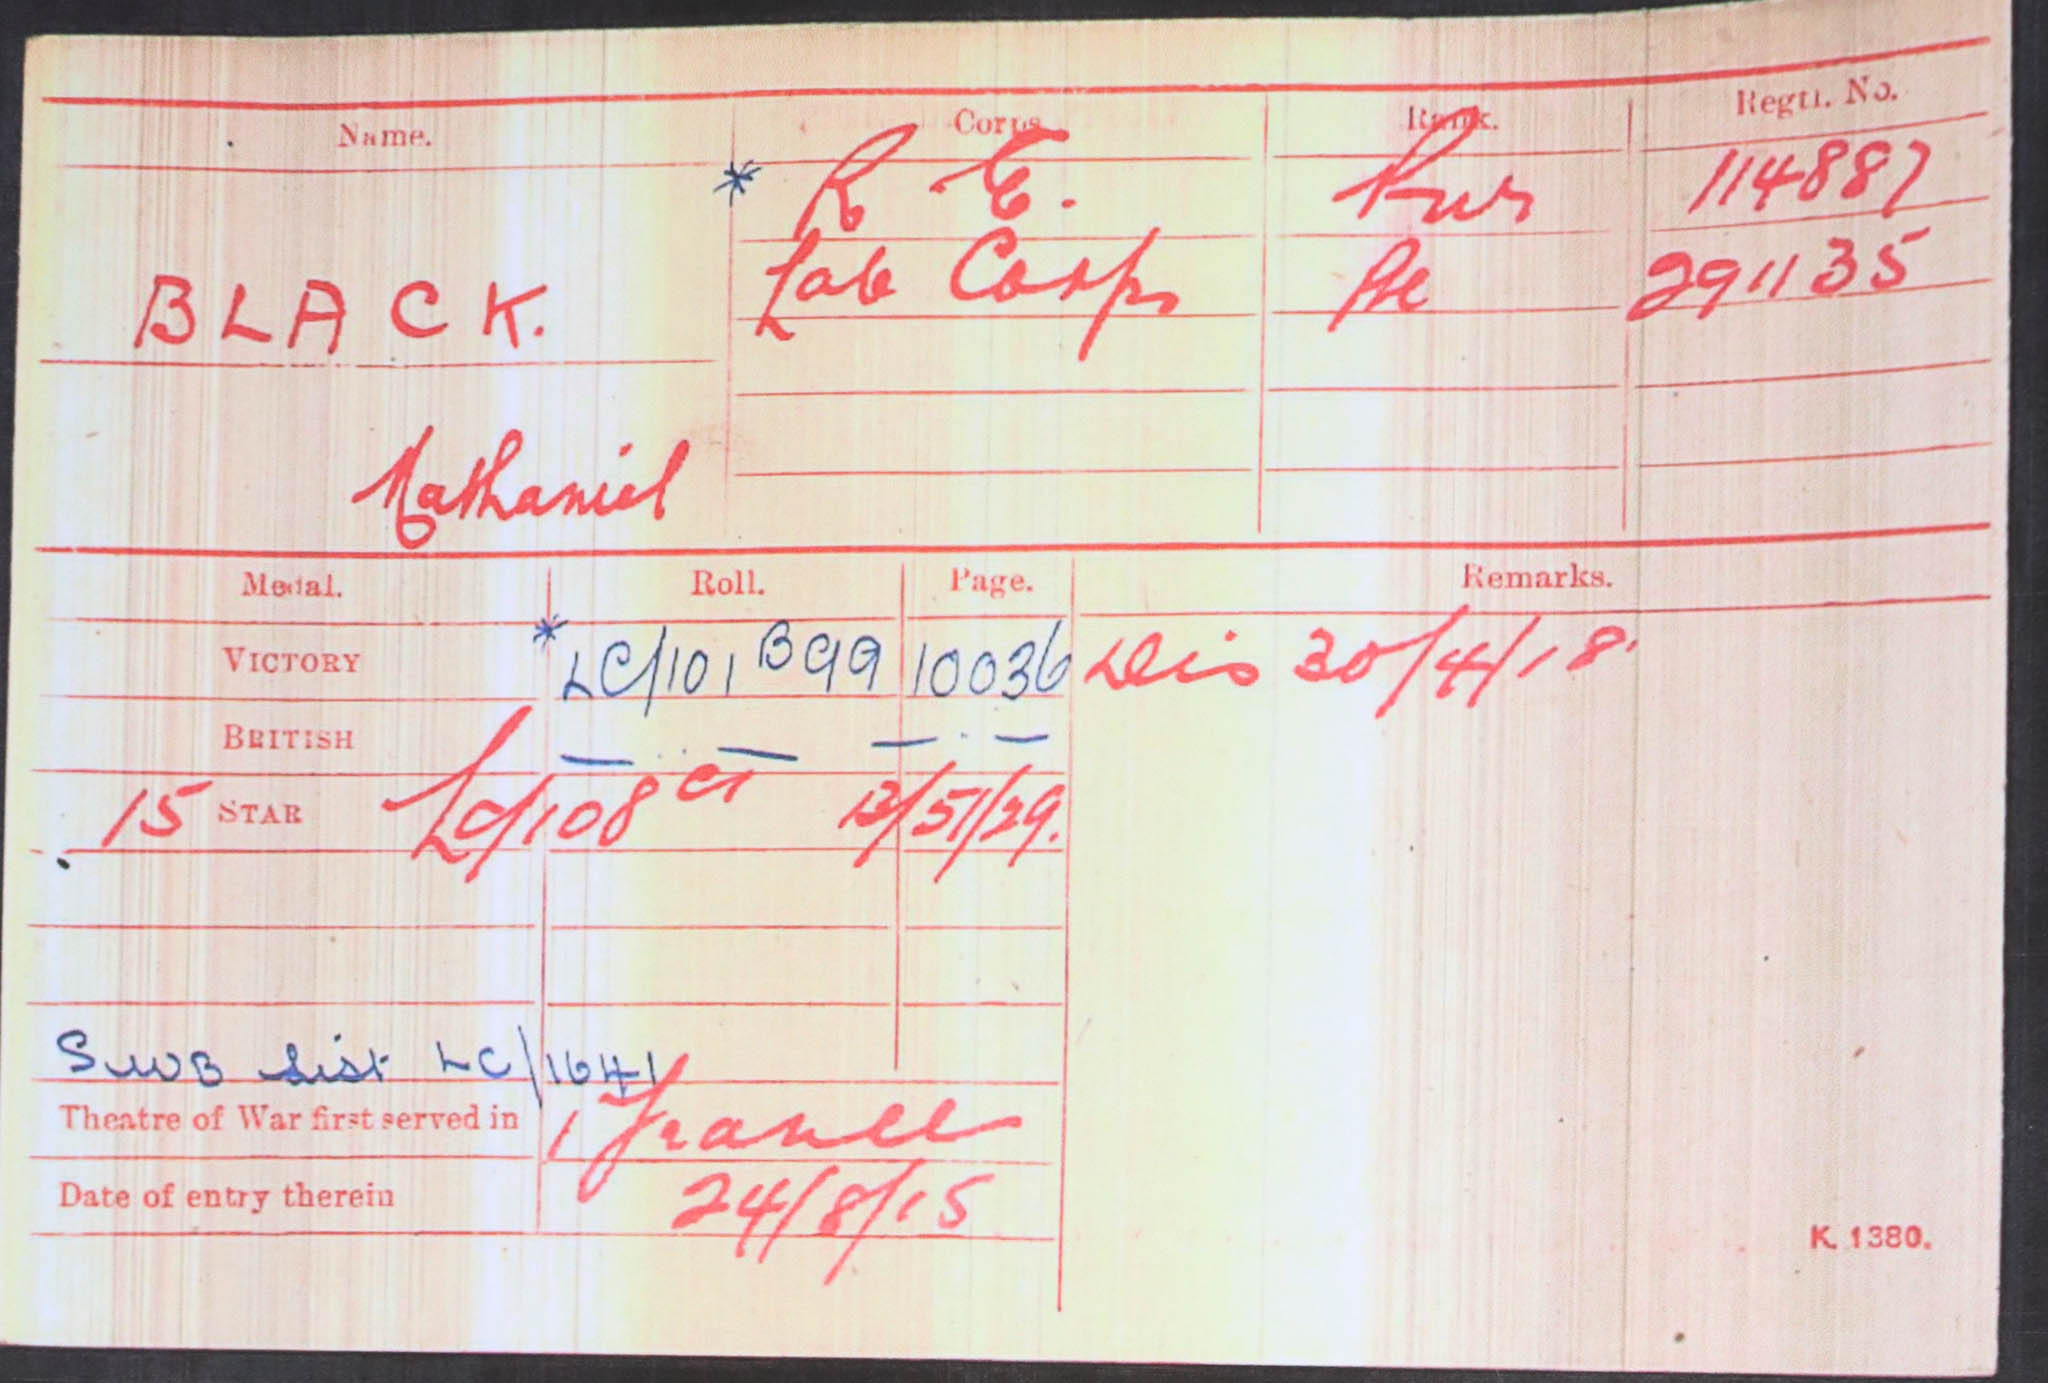 Name. Corps. Rank. Regtl. No.
* R E. Pnr 114887
BLACK. Lab Corps Pte 291135
Nathaniel
Medal. Roll. Page. Remarks.
VICTORY * LC/101 B99 10036 Dis 30/4/18.
BRITISH — " — — " —
15 STAR LC/108 C1 B/51/29.
SWB List LC/1641
Theatre of War first served in 1 France
Date of entry therein 24/8/15
K. 1380.